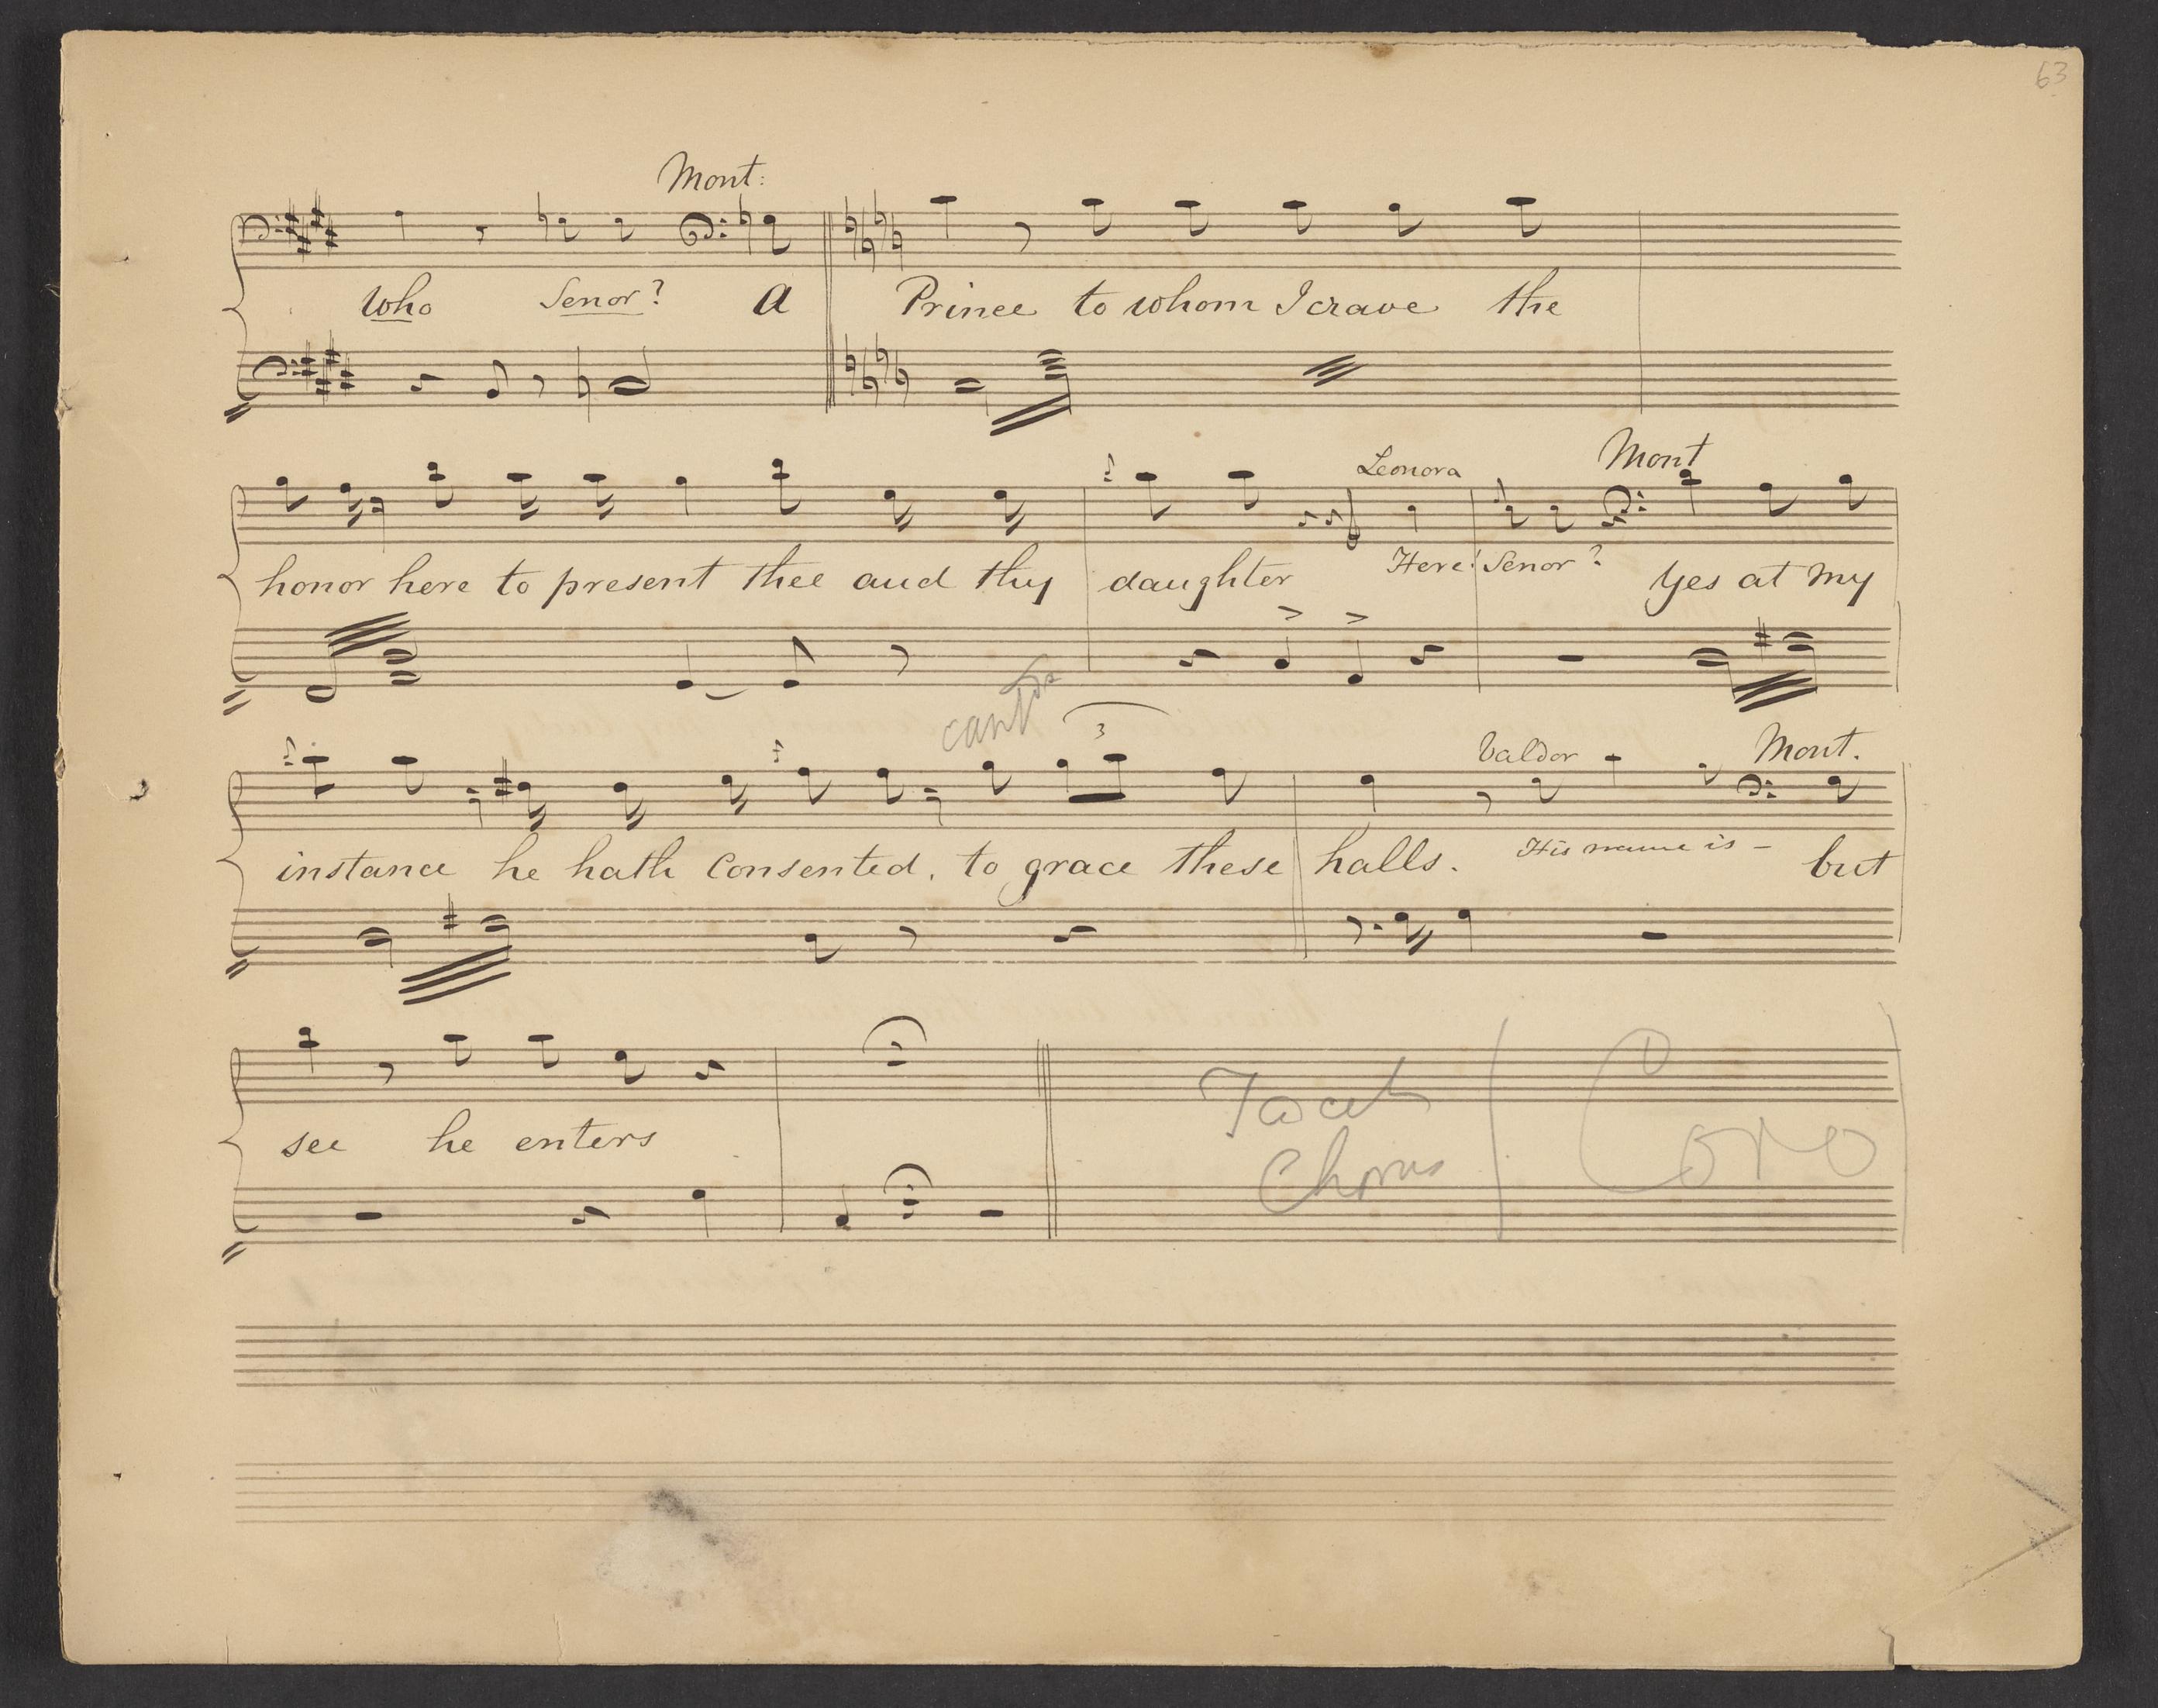 63
Mont:
Who Senor? A Prince to whom I crave the
Leonora Mont
honor here to present thee and thy daughter Here! Senor? Yes at my
3
Valdor Mont.
instance he hath Consented, to grace these halls. His name is – but
see he enters
Tacet Coro
Chorus